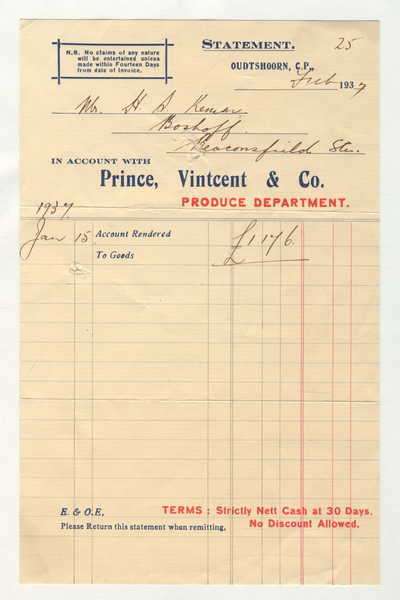 N.B. No claims of any nature
will be entertained unless
made within Fourteen Days
from date of Invoice.
STATEMENT. 25
OUDTSHOORN, C.P.,
Feb 1937
Mr. H S
Boshoff.
Beaconsfield Str.
IN ACCOUNT WITH
Prince, Vintcent & Co.
PRODUCE DEPARTMENT.
1937
Jan 15 Account Rendered £1 17 6
To Goods
E. & O.E,
TERMS : Strictly Nett Cash at 30 Days.
Please Return this statement when remitting. No Discount Allowed.